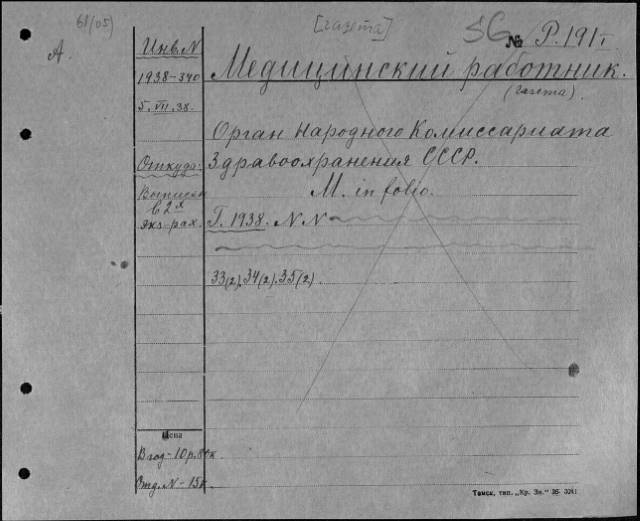 61/05)
[газета]
SG № Р.191т
А.
Инв. N
1938-340
5.VII.38.
Медицинский работник.
(газета)
Орган Народного Комиссариата
Откуда:
Здравоохранения СССР.
Выписыв
в 2х
экз-рах.
М. in folio.
Г. 1938. N.N
33(2), 34(2), 35(2)
Цена
В год-10р.80к.
Отд. N-15к.
Томск, тип. „Кр. Зн." 36 3241